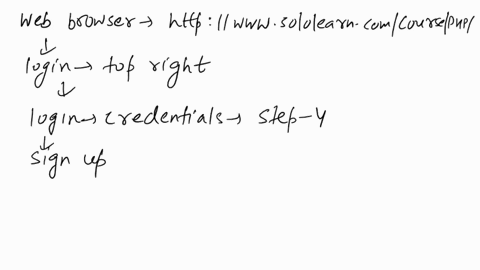 Web browser → http://www.sololearn.com/Course/PHP/
↓
login → top right
↓
login → credentials → step-4
↓
sign up